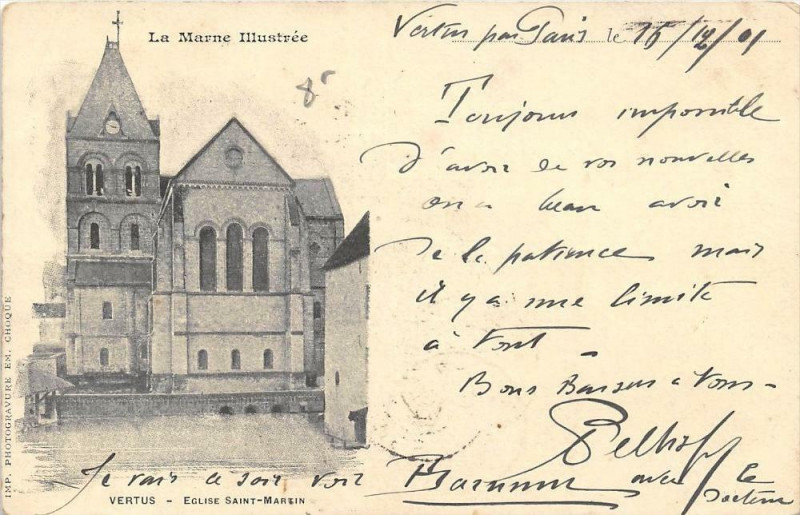 La Marne Illustrée
Vertus par Paris le 15/12/01
8
Toujours impossible
d'avoir de vos nouvelles
on a beau avoir
de la patience mais
il y a une limite
à tout –
Bons Baisers a tous –
Je vais ce soir voir Barnum avec le
Docteur
VERTUS - EGLISE SAINT-MARTIN
IMP. PHOTOGRAVURE EM. CHOQUE